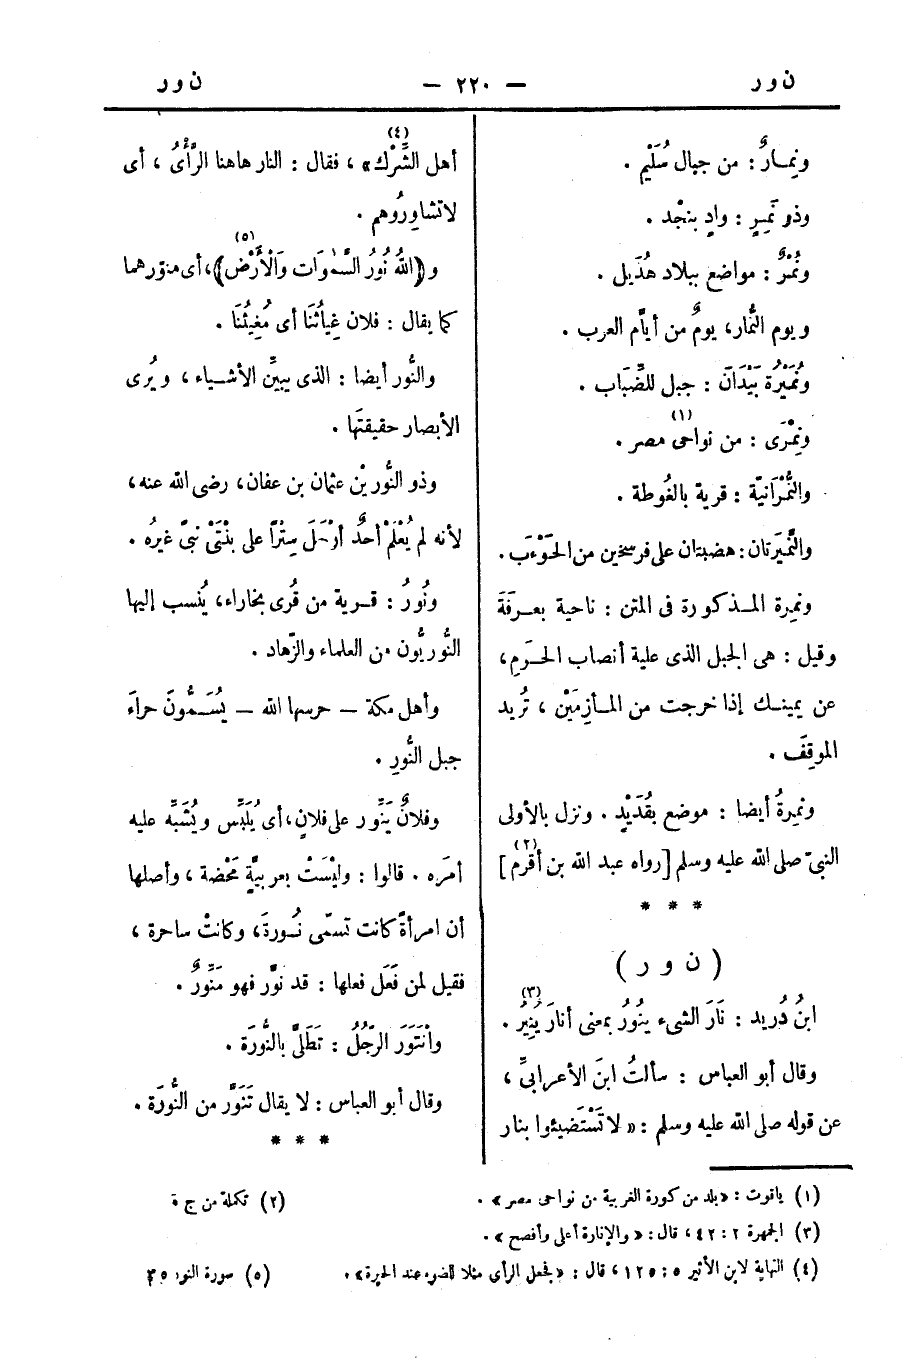 ن و ر — ٢٢٠ — ن و ر
ونِمـارٌ : من جبال سُلَيْم .
وذو نَمِرٍ : وادٍ بنجْد .
ونُمْرٌ : مواضع ببلاد هُذَيل .
ويوم النُّمار، يومٌ من أيّام العرب .
ونُمَيْرَةُ بَيْدَانَ : جبل للضِّبَاب .
ونِمْرَى (١) : من نواحى مصر .
والنُّمْرَانِيّة : قرية بالغُوطة .
والنَّمِيرَتان : هضبتان على فرسخين من الحَوْءَب .
ونمِرة المـذكورة فى المتن : ناحية بعـرَفَة
وقيل : هى الجبل الذى علية أنصاب الحَـرَمِ،
عن يمينـك إذا خرجت من المـأزِمَيْن ، تُريد
الموقِفَ .
ونمِرةُ أيضا : موضع بقُدَيْدٍ . ونزل بالأولى
النبىّ صلى الله عليه وسلم [رواه عبد الله بن أقْرم (٢)]
* * *
( ن و ر )
ابنُ دُريد : نَارَ الشىء ينُورُ بمعنى أنارَ يُنِيرُ (٣) .
وقال أبو العباس : سألتُ ابنَ الأعرابىِّ ،
عن قوله صلى الله عليه وسلم : « لا تَسْتَضيئوا بنار
أهل الشِّرْك » (٤) ، فقال : النار هاهنا الرَّأْىُ ، أى
لا تشاوِرُوهم .
و ﴿اللهُ نُورُ السَّمٰوَات وَالْأَرْض﴾ (٥)، أى منوّرهما
كما يقال : فلان غِيَاثُنَا أى مُغِيثُنَا .
والنُّور أيضا : الذى يبيِّن الأشـياء ، ويُرى
الأبصار حقيقتَها .
وذو النُّورِيْن عثمان بن عفان، رضى الله عنه،
لأنه لم يُعْلَمْ أحدٌ أرْسَلَ سِتْرًا على بنْتَىْ نبىّ غيرُه .
ونُورُ : قـرية من قُرى بخاراء، يُنسب إليها
النُّوريُّون من العلماء والزّهاد .
وأهل مكة — حرسها الله — يُسَـمُّونَ حراءَ
جبل النُّورِ .
وفلانٌ يَنَوِّر على فلانٍ، أى يُلَبِّس ويُشَبِّه عليه
أمرَه . قالوا : وليْسَتْ بعربيَّةٍ مَحْضة ، وأصلها
أن امرأةً كانت تسمّى نُـورةَ، وكانتْ ساحرة ،
فقيل لمن فَعَل فعلها : قد نوَّر فهو مَنَوِّرٌ .
وانْتَوَرَ الرّجُلُ : تَطَلَّى بالنُّورَة .
وقال أبو العباس : لا يقال تَنَوَّر من النُّورَة .
* * *
(١) ياقوت : «بلد من كورة الغربية من نواحى مصر» . (٢) تكملة من ج
(٣) الجمهرة ٢ : ٤٢٠، قال : « والإنارة أعلى وأفصح » .
(٤) النهاية لابن الأثير ٥ : ١٢٥، قال : « فجعل الرأى مثلا للضوء عند الحيرة» . (٥) سورة النور ٣٥